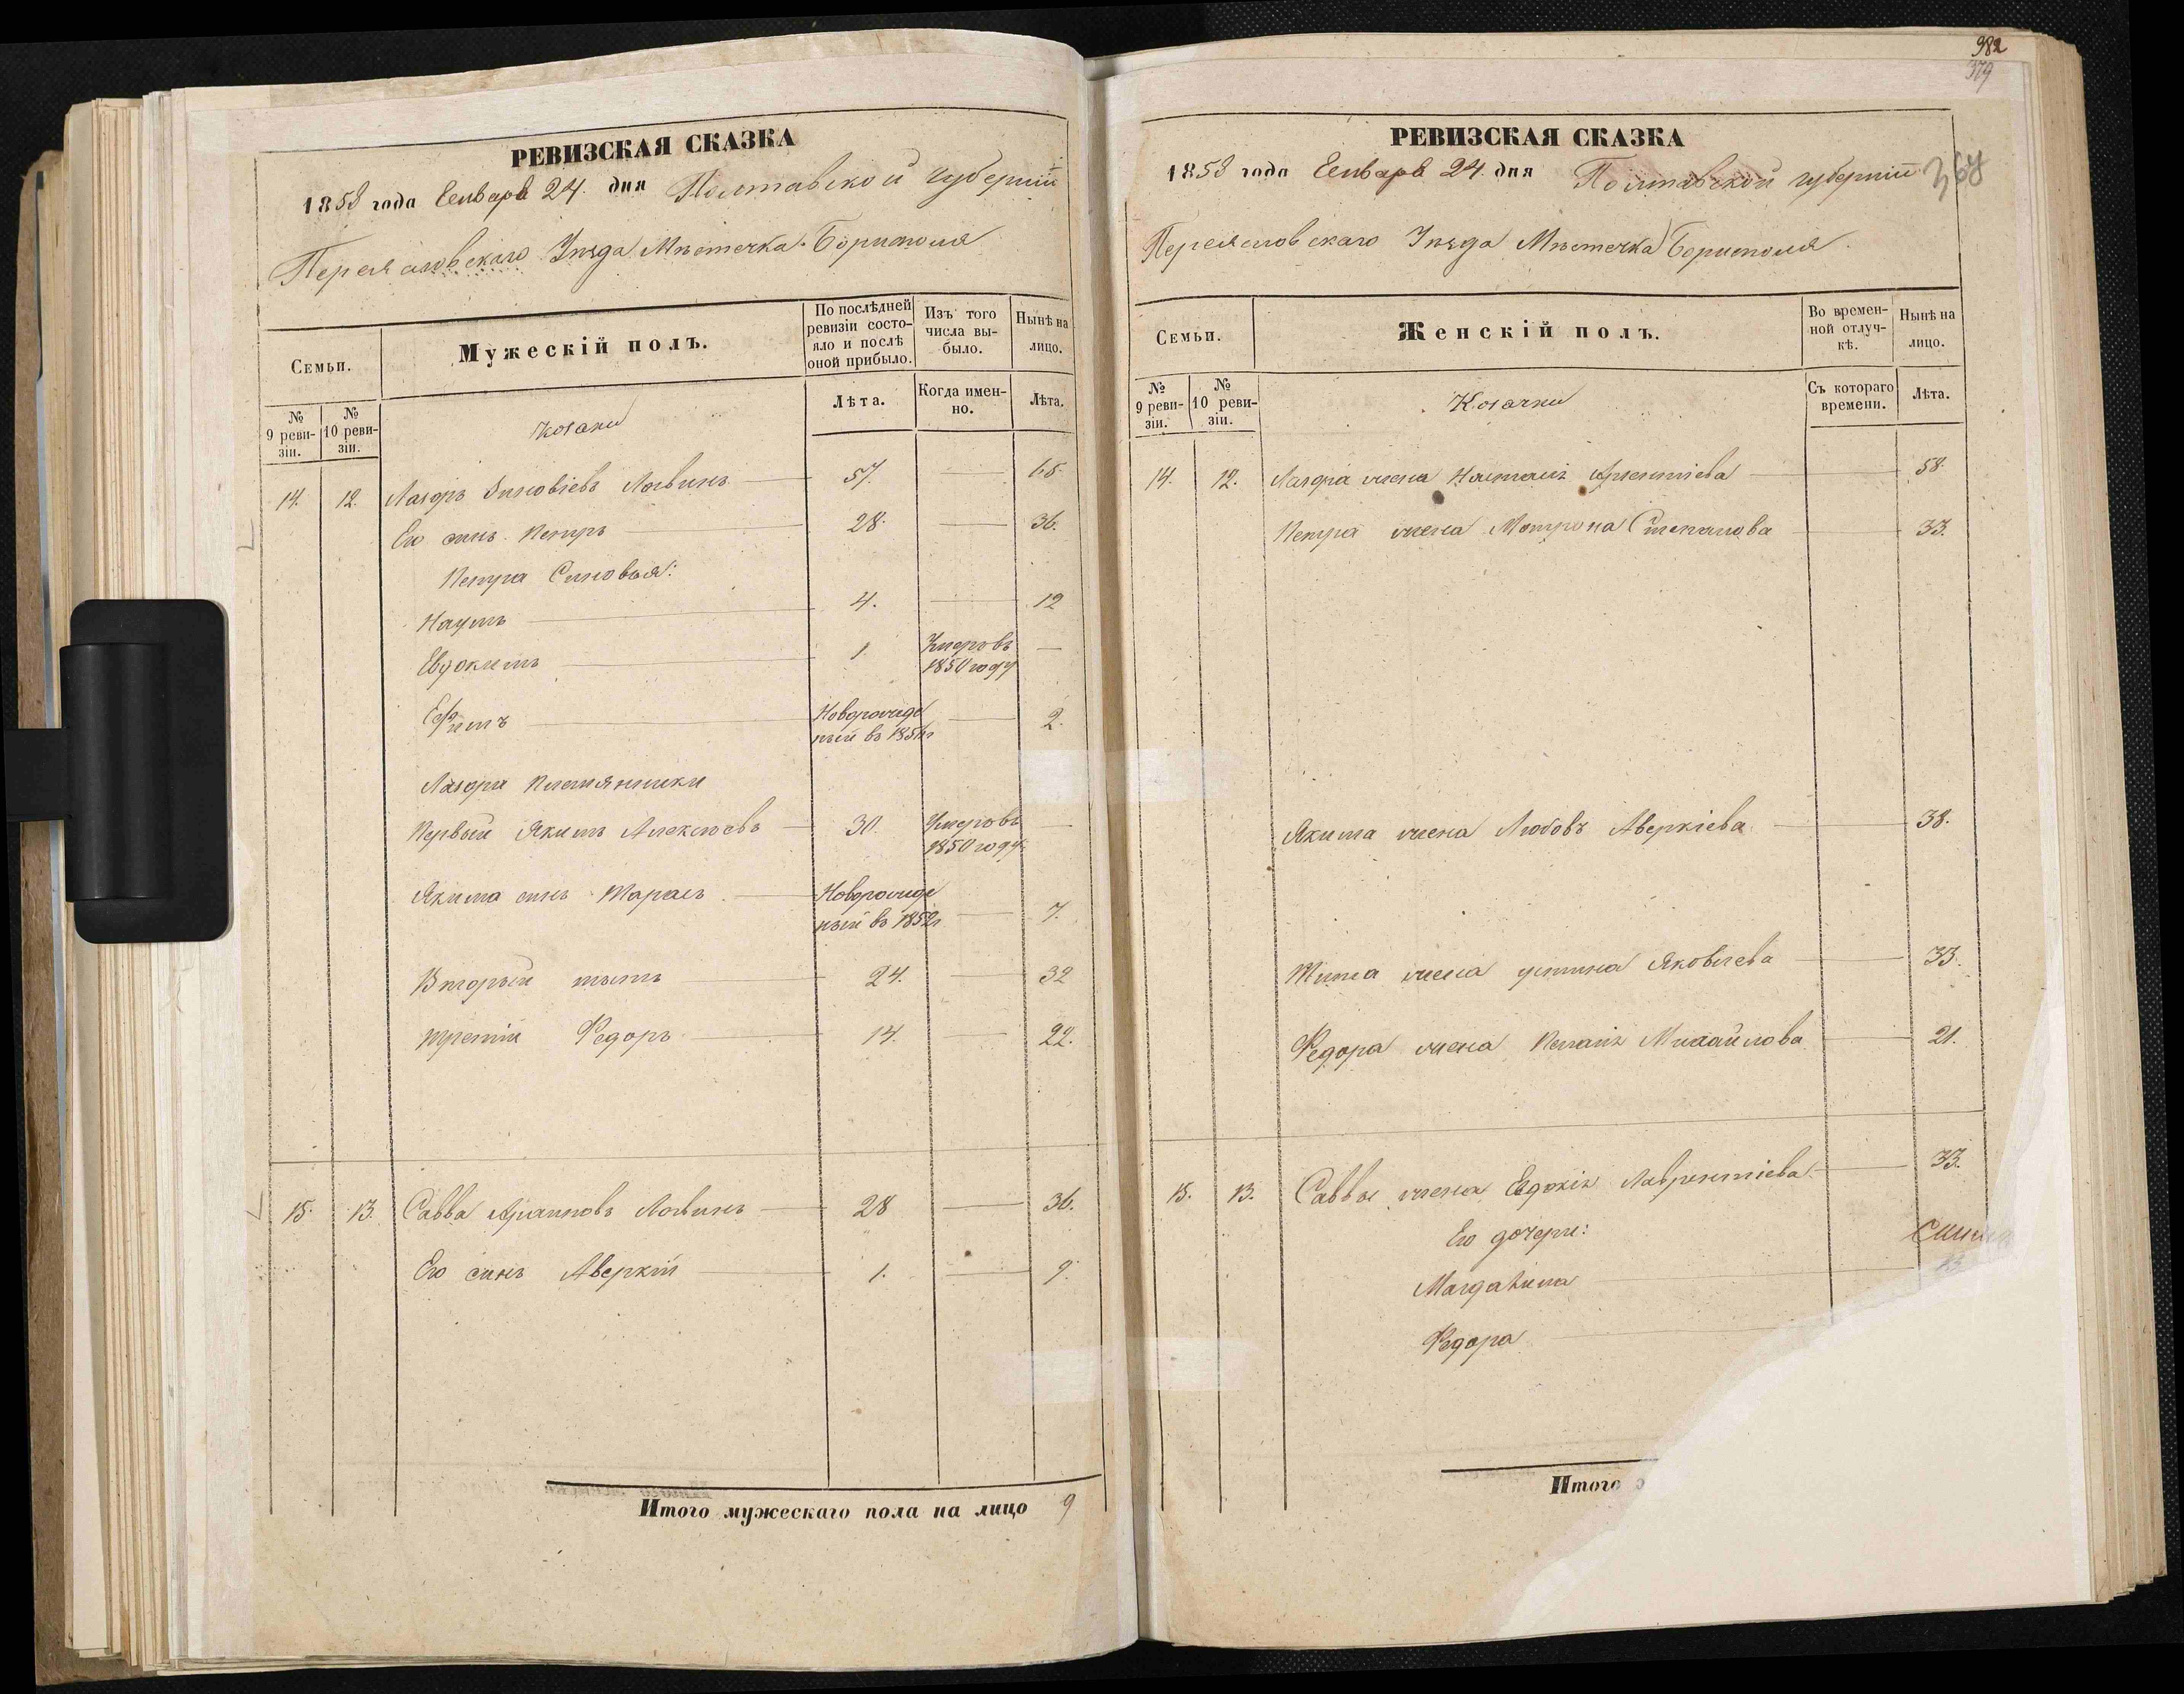 982
379
РЕВИЗСКАЯ СКАЗКА
1858 года Генваря 24. дня Полтавской губернiи
Переяславскаго Уѣзда Мѣстечка Борисполя
Семьи.
Мужескій полъ.
По послѣдней ревизіи состояло и послѣ оной прибыло.
Изъ того числа выбыло.
Нынѣ на лицо.
№ 9 ревизіи.
№ 10 ревизіи.
козаки
Лѣта.
Когда именно.
Лѣта.
14. 12. Лазорь Логвинъ 57. 65
Его синъ Петръ 28. 36.
Петра Синовья:
Наумъ 4. 12
Евдокимъ 1. Умеръ въ 1850 году
Ефимъ Новорожденый въ 1856г 2.
Лазоря племянники
Первый Якимъ Алексѣевъ 30. Умеръ въ 1850 году
Якима синъ Тарасъ Новорожденый въ 1852г 7.
Вторый титъ 24. 32
третiй Федоръ 14. 22.
15. 13. Савва Логвинъ 28 36.
Его синъ Аверкiй 1. 9.
Итого мужескаго пола на лицо 9
РЕВИЗСКАЯ СКАЗКА
1858 года Генваря 24. дня Полтавской губернiи 368
Переяславскаго Уѣзда Мѣстечка Борисполя.
Семьи.
Женскій полъ.
Во временной отлучкѣ.
Нынѣ на лицо.
№ 9 ревизіи.
№ 10 ревизіи.
Козачки
Съ котораго времени.
Лѣта.
14. 12. Лазоря жена Настасiя 58.
Петра жена Мотрона Степанова 33.
Якима жена Любовъ Аверкiева 38.
Тита жена устина Яковлева 33.
Федора жена Пелагiя Михайлова 21.
15. 13. Саввы жена Евдокiя Лаврентiева 33.
Его дочери:
Магдалина
Федора
Итого